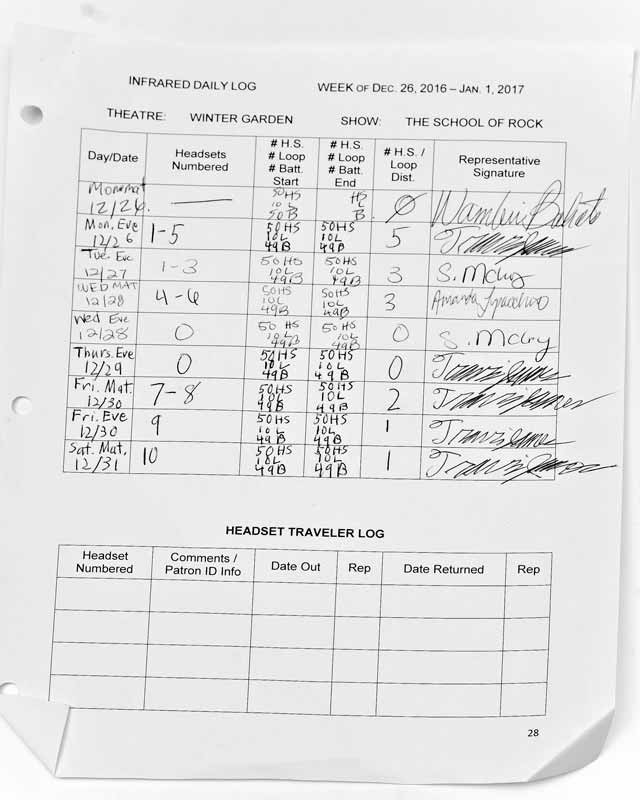 INFRARED DAILY LOG WEEK OF DEC. 26, 2016 – JAN. 1, 2017
THEATRE: WINTER GARDEN SHOW: THE SCHOOL OF ROCK
Day/Date Headsets Numbered # H.S. # Loop # Batt. Start # H.S. # Loop # Batt. End # H.S. / Loop Dist. Representative Signature
Mon mat 12/26. — 50HS 10L 50B HS L B. 0
Mon. Eve 12/26 1-5 50HS 10L 49B 50HS 10L 49B 5 Travis James
Tue. Eve 12/27 1-3 50HS 10L 49B 50HS 10L 49B 3 S. McIry
WED MAT 12/28 4-6 50HS 10L 49B 50HS 10L 49B 3 Amanda
Wed Eve 12/28 0 50 HS 10L 49B 50 HS 10L 49B 0 S. McIry
Thurs. Eve 12/29 0 50HS 10L 49B 50HS 10L 49B 0 Travis James
Fri. Mat. 12/30 7-8 50HS 10L 49B 50HS 10L 49B 2 Travis James
Fri. Eve 12/30 9 50HS 10L 49B 50HS 10L 49B 1 Travis James
Sat. Mat, 12/31 10 50HS 10L 49B 50HS 10L 49B 1 Travis James
HEADSET TRAVELER LOG
Headset Numbered Comments / Patron ID Info Date Out Rep Date Returned Rep
28